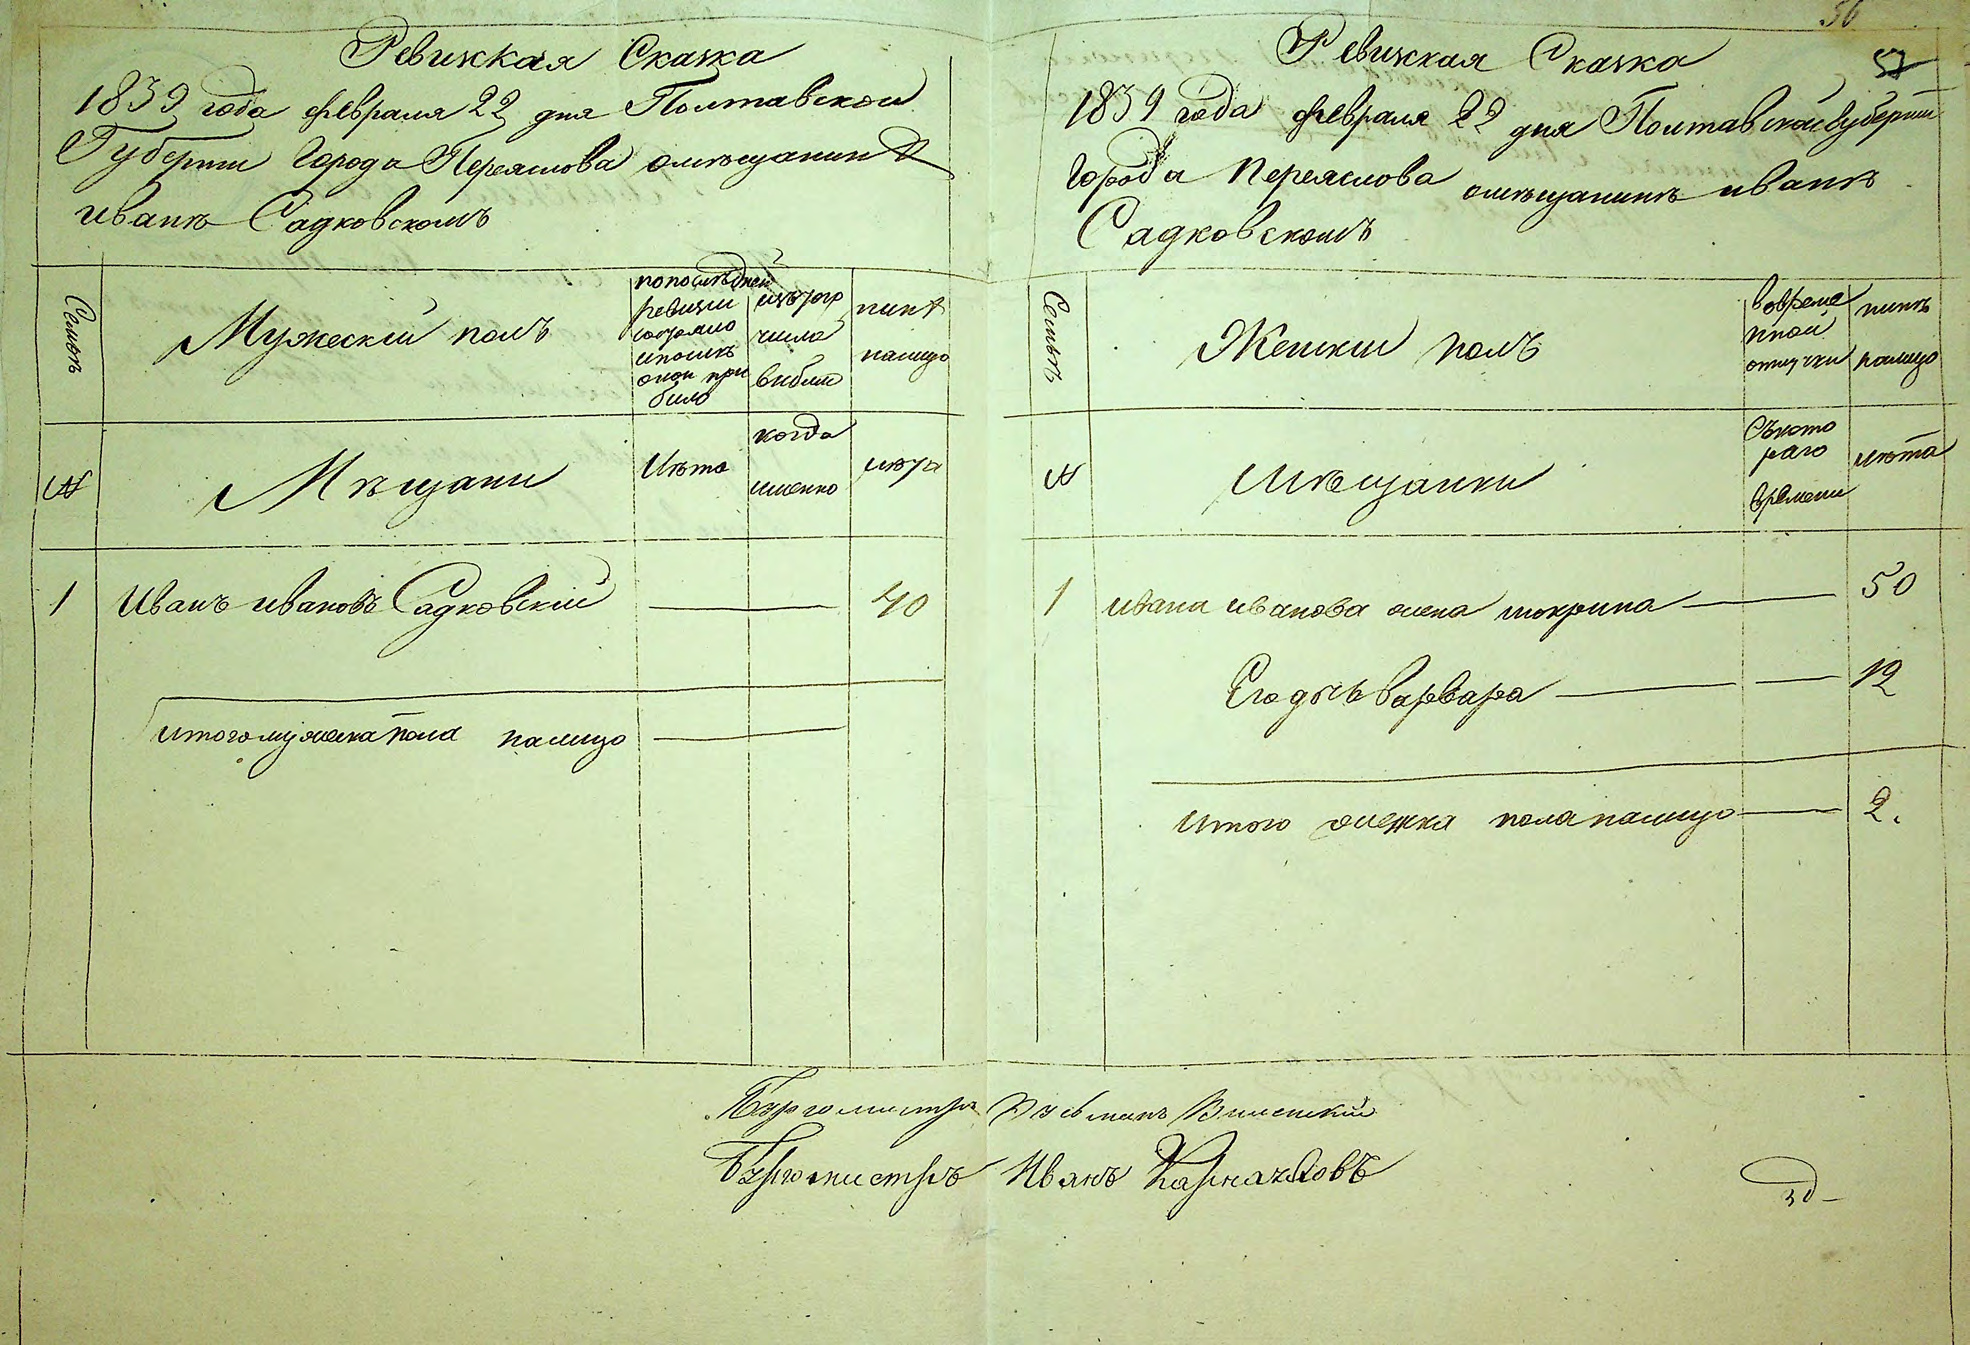 56
57
Ревижкая Сказка
1839 года февраля 22 дня Полтавской
Губернии Города Переяслова омещанинѣ
иванѣ Садковскомъ
Семьи
Мужескій полъ
попослѣдней
ревизіи
состояло
ипослѣ
оной при
било
изъ того
числа
вибило
нинѣ
налицо
№
Мѣщани
Лѣта
когда
именно
лѣта
1 Иванъ ивановъ Садковскій 40
итого мужеска пола налицо
Ревижкая Сказка
1839 года февраля 22 дня Полтавской Губерніи
Города Переяслова омѣщанинѣ иванѣ
Садковскомъ
Семьи
Женскій полъ
вовреме
нной
отлучки
нинѣ
налицо
№
Мѣщанки
Съкото
раго
времени
лѣта
1 ивана иванова жена мокрина 50
Его дочь варвара 12
итого женска пола налицо 2.
Бургомистръ
Бургомистръ Иванъ